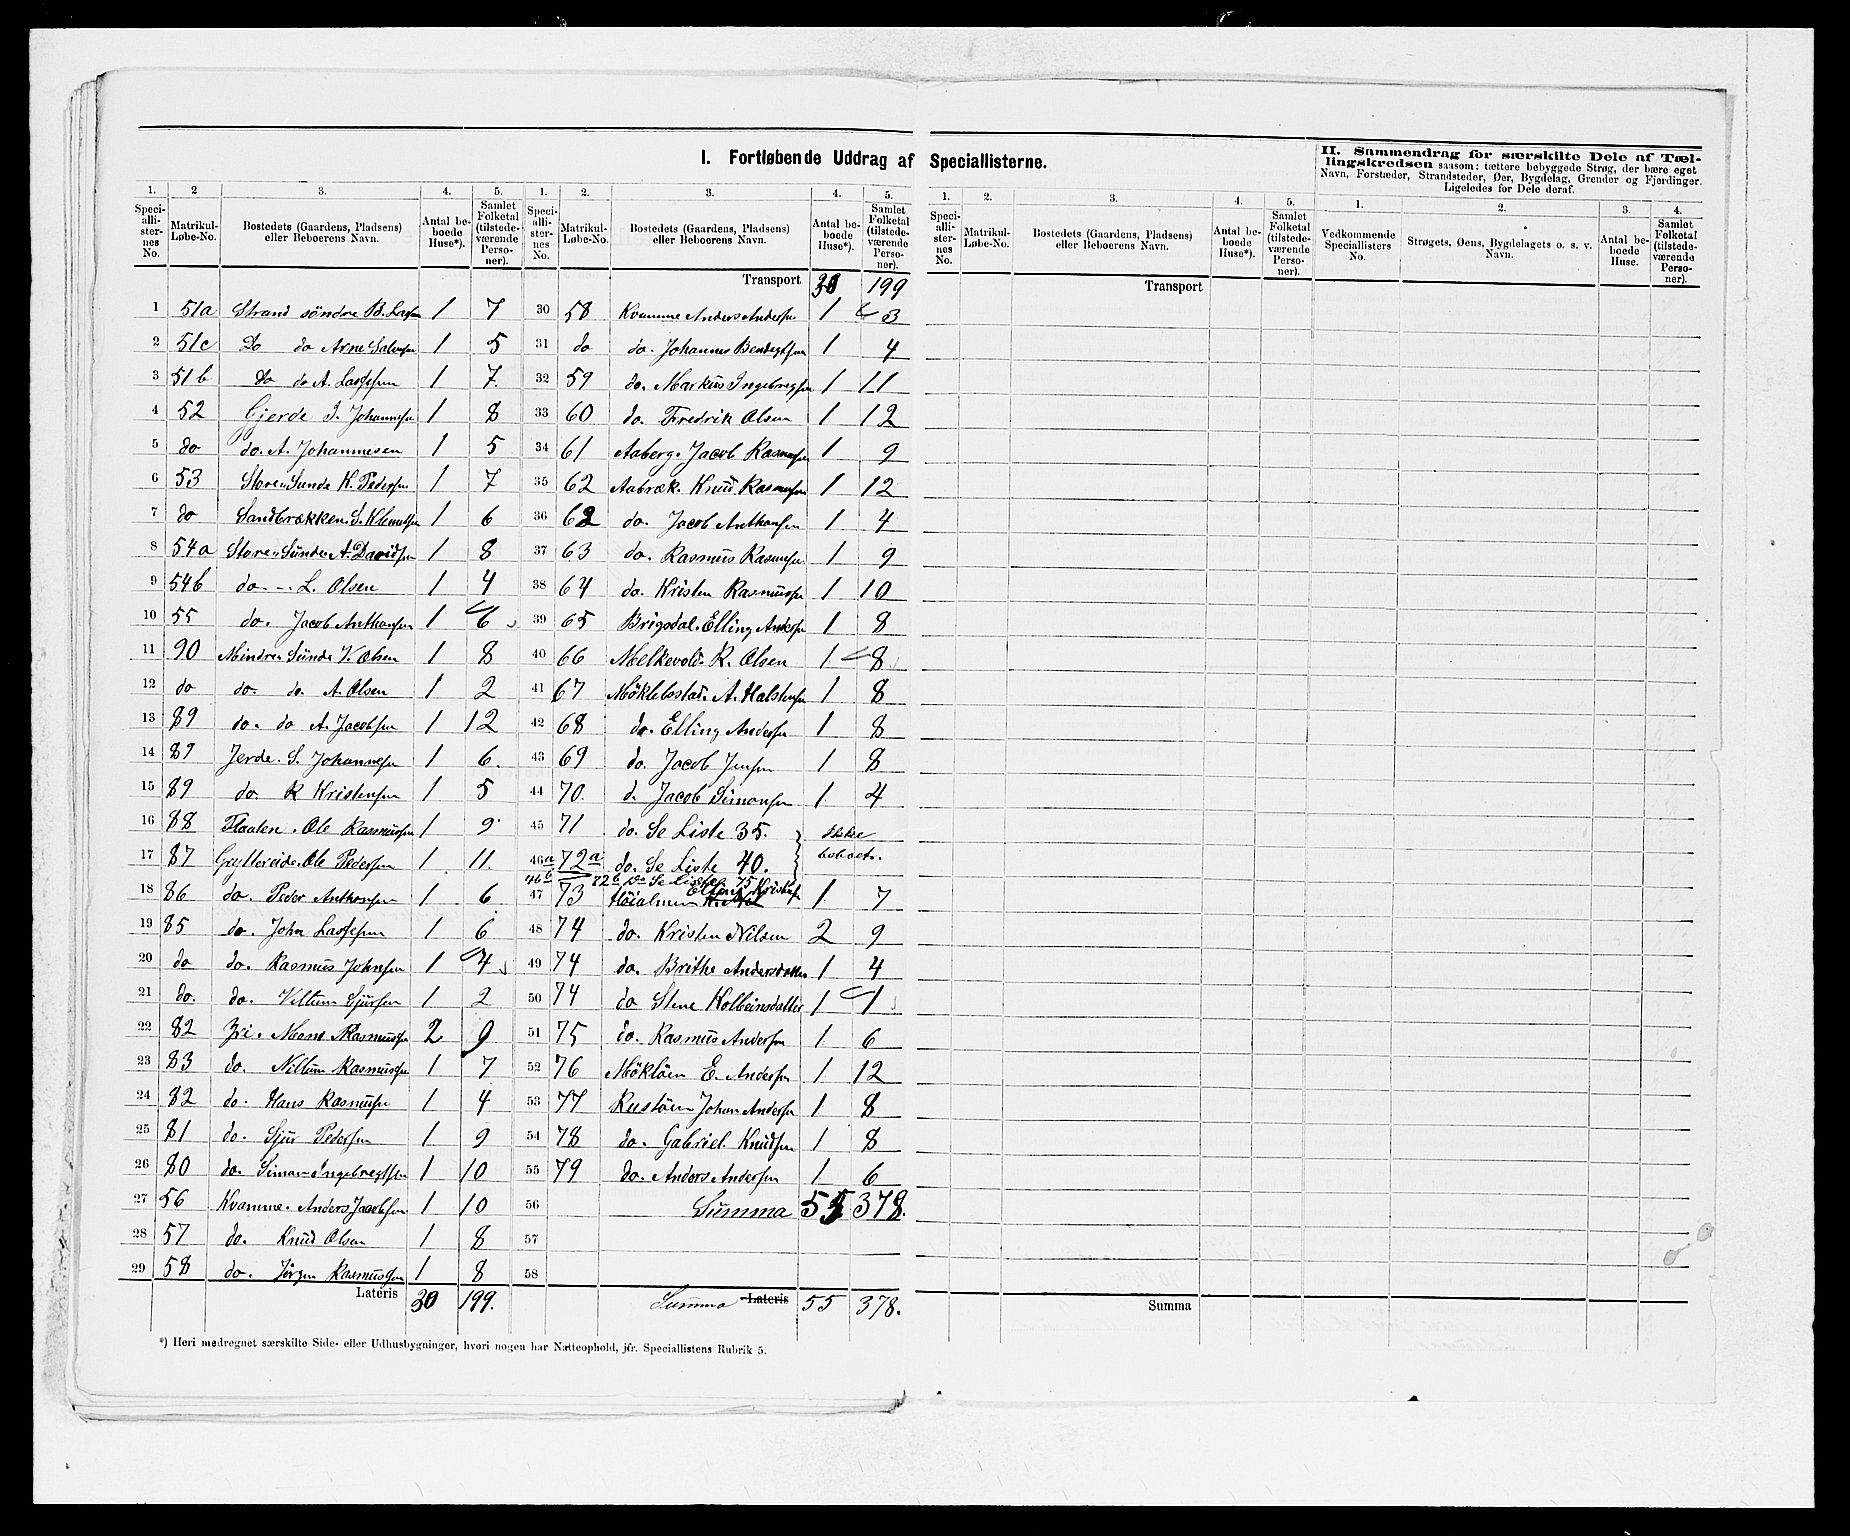 I. Fortløbende Uddrag af Speciallisterne.
II. Sammendrag for særskilte Dele af Tællingskredsen saasom: tættere bebyggede Strøg, der bære eget Navn, Forstæder, Strandsteder, Øer, Bygdelag, Grender og Fjerdinger. Ligeledes for Dele deraf.
1. 2 3. 4. 5. 1. 2. 3. 4. 5. 1. 2. 3. 4. 5. 1. 2. 3. 4.
Speciallisternes No. Matrikul-Løbe-No. Bostedets (Gaardens, Pladsens) eller Beboerens Navn. Antal beboede Huse*). Samlet Folketal (tilstedeværende Personer).
Speciallisternes No. Matrikul-Løbe-No. Bostedets (Gaardens, Pladsens) eller Beboerens Navn. Antal beboede Huse*). Samlet Folketal (tilstedeværende Personer).
Speciallisternes No. Matrikul-Løbe-No. Bostedets (Gaardens, Pladsens) eller Beboerens Navn. Antal beboede Huse*). Samlet Folketal (tilstedeværende Personer).
Vedkommende Speciallisters No. Strøgets, Øens, Bygdelagets o. s. v. Navn. Antal beboede Huse. Samlet Folketal (tilstedeværende Personer).
1 51a Strand söndre B. 1 7
2 51c Do do Arne 1 5
3 51b Do do A. Lassesen 1 7.
4 52 Gjerde I. Johannesen 1 8
5 do do. A. Johannesen 1 5
6 53 Store Sunde K. Pedersen 1 7
7 do Sandbrækken S. 1 6
8 54a Store Sunde A. Davidsen 1 8
9 54b do - L. Olsen 1 4
10 55 do. Jacob Anthonsen 1 6
11 90 Mindre Sunde V. Olsen 1 8
12 do do. do. A. Olsen 1 2
13 89 do. do A. Jacobsen 1 12
14 89 Jerde. S. Johannesen 1 6.
15 89 do. R Kristensen 1 5
16 88 Flaaten. Ole Rasmussen 1 9
17 87 Gryttereide. Ole Pedersen 1 11.
18 86 do. Peder Anthonsen 1 6
19 85 do. John Lassesen 1 6
20 do do. Rasmus Johnsen 1 4
21 do. do. Villum Sjursen 1 2
22 82 Mons Rasmussen 2 9
23 83 do. Rasmussen 1 7
24 82 do. Hans Rasmussen 1 4
25 81 do. Sjur Pedersen 1 9
26 80 do. Simon Ingebregtsen 1 10
27 56 Kvamme. Anders Jacobsen 1 10
28 57 do. Knud Olsen 1 8
29 58 do. Jörgen Rasmussen 1 8
Lateris 30 199.
Transport 30 199
30 58 Kvamme Anders Andersen 1 3
31 do do. Johannes Bendigtsen 1 4
32 59 do. Markus Ingebregtsen 1 11
33 60 do. Fredrik Olsen 1 12
34 61 Aaberg. Jacob Rasmussen 1 9
35 62 Aabræk. Knud Rasmussen 1 12
36 62 do. Jacob Anthonsen 1 4
37 63 do. Rasmus Rasmussen 1 9
38 64 do. Kristen Rasmussen 1 10
39 65 Brigsdal. Elling Andersen 1 8
40 66 Melkevold. R. Olsen 1 8
41 67 Möklebostad. A. Halstensen 1 8
42 68 do. Elling Andersen 1 8
43 69 do. Jacob Jensen 1 8
44 70. d. Jacob Simonsen 1 4
45 71 do. Se Liste 35. ikke
46a 72a do. Se Liste 40. beboet.
46b 72b Do Se Liste 75
47 73 Höialmen Elling Kristensen 1 7
48 74 do. Kristen Nilsen 2 9
49 74 do. Brithe Andersdatter 1 4
50 74 do Stine Kolbeinsdatter 1 1
51 75 do. Rasmus Andersen 1 6
52 76 Möklöen E. Andersen 1 12
53 77 Rustöen Johan Andersen 1 8
54 78 do. Gabriel Knudsen 1 8
55 79 do. Anders Andersen 1 6
56 Summa 55 378.
57
58
Summa Lateris 55 378.
Transport
Summa
*) Heri medregnet særskilte Side- eller Udhusbygninger, hvori nogen har Natteophold, jfr. Speciallistens Rubrik 5.